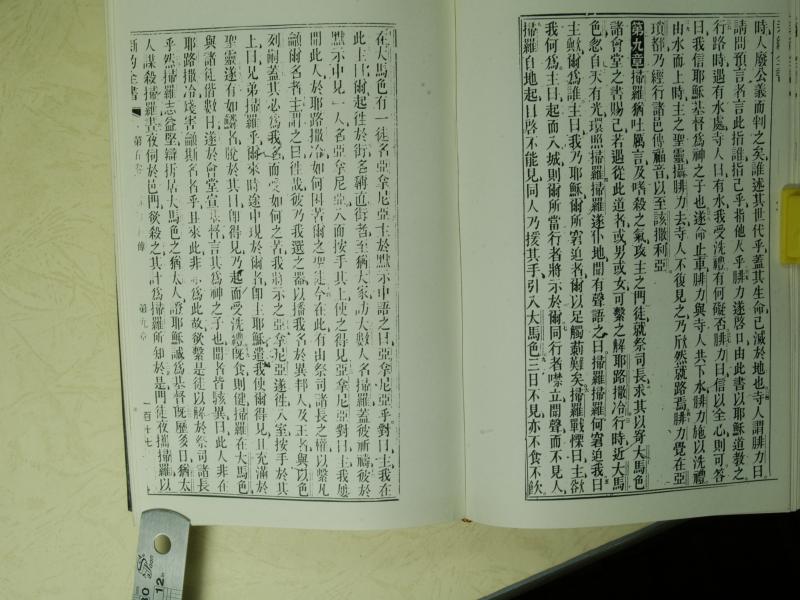 時人廢公義而判之矣誰述其世代乎蓋其生命已滅於地也寺人謂腓力曰
請問預言者言此指誰指己乎指他人乎腓力遂啓口由此書以耶穌道教之
行路時遇有水處寺人曰有水我受洗禮有何礙否腓力曰信以全心則可答
曰我信耶穌基督爲神之子也遂命止車腓力與寺人共下水腓力施以洗禮
由水而上時主之聖靈攝腓力去寺人不復見之乃欣然就路焉腓力覺在亞
瑣都乃經行諸邑傳福音以至該撒利亞
第九章掃羅猶吐厲言及嗜殺之氣攻主之門徒就祭司長求其以寄大馬色
諸會堂之書賜己若遇從此道者或男或女可繫之解耶路撒冷行時近大馬
色忽自天有光環照掃羅掃羅遂仆地聞有聲語之曰掃羅掃羅何窘迫我曰
主歟爾爲誰主曰我乃耶穌爾所窘迫者爾以足觸蒺難矣掃羅戰慄曰主欲
我何爲主曰起而入城則爾所當行者將示於爾同行者噤立聞聲而不見人
掃羅自地起目啓不能見同人乃援其手引入大馬色三日不見亦不食不飲
在大馬色有一徒名亞拿尼亞主於默示中語之曰亞拿尼亞乎對曰主我在
此主曰爾起往於街名稱直街者至猶大家訪大數人名掃羅蓋彼祈禱彼於
默示中見一人名亞拿尼亞入而按手其上使之得見亞拿尼亞對曰主我屢
聞此人於耶路撒冷如何困苦爾之聖徒今在此有由祭司諸長之權以繫凡
籲爾名者主謂之曰往哉彼乃我選之器以播我名於異邦人及王者與以色
列嗣蓋其必爲我名而受如何之苦我將示之亞拿尼亞遂往入室按手於其
上曰兄弟掃羅乎爾來時途中現於爾者卽主耶穌遣我使爾得見且充滿於
聖靈遂有如鱗者脫於其目卽得見乃起而受洗禮旣食則健掃羅在大馬色
與諸徒偕數日遂於會堂宣基督言其爲神之子也聞者皆駭異曰此人非在
耶路撒冷殘害籲斯名者乎且來此非亦爲此故欲繫是徒以解於祭司諸長
乎然掃羅志益堅辯折居大馬色之猶太人證耶穌誠爲基督旣歷多日猶太
人謀殺掃羅晝夜伺於邑門欲殺之其計爲掃羅所知於是門徒夜攜掃羅以
新約全書 第五卷 傳 第九章 一百十七